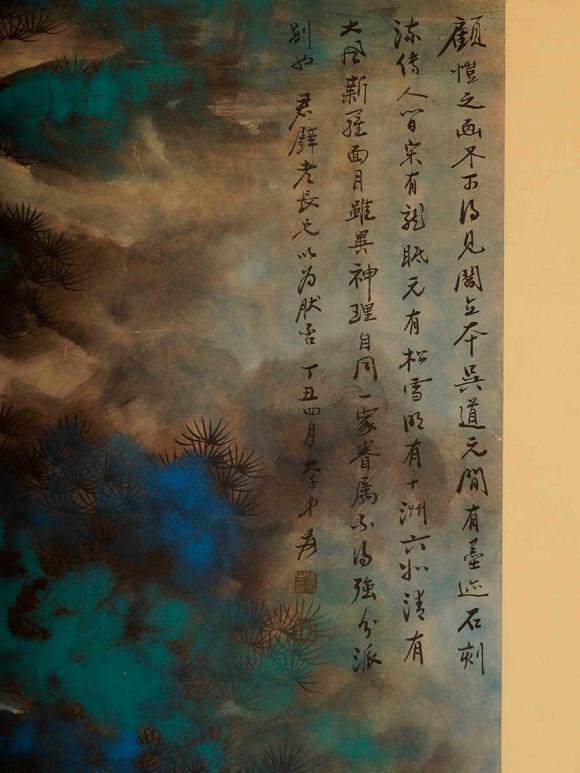 顧愷之画不可得見閻立本吳道元間有墨迹石刻
流傳人間宋有龍眠元有松雪明有十洲六如清有
大風新羅面目雖異神理自同一家眷属不得強分派
别也 君璧老長兄以为肰否 丁丑四月 大千弟爰